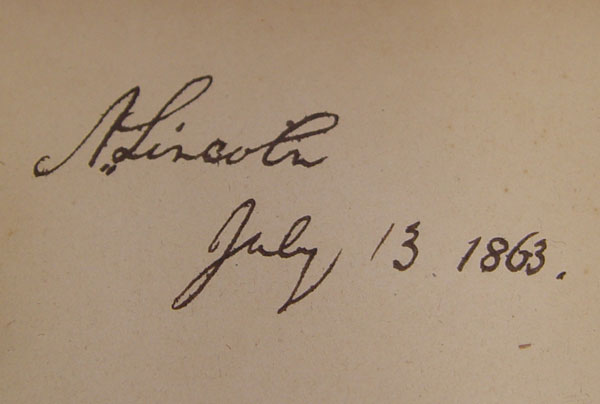 A. Lincoln
July 13 1863.